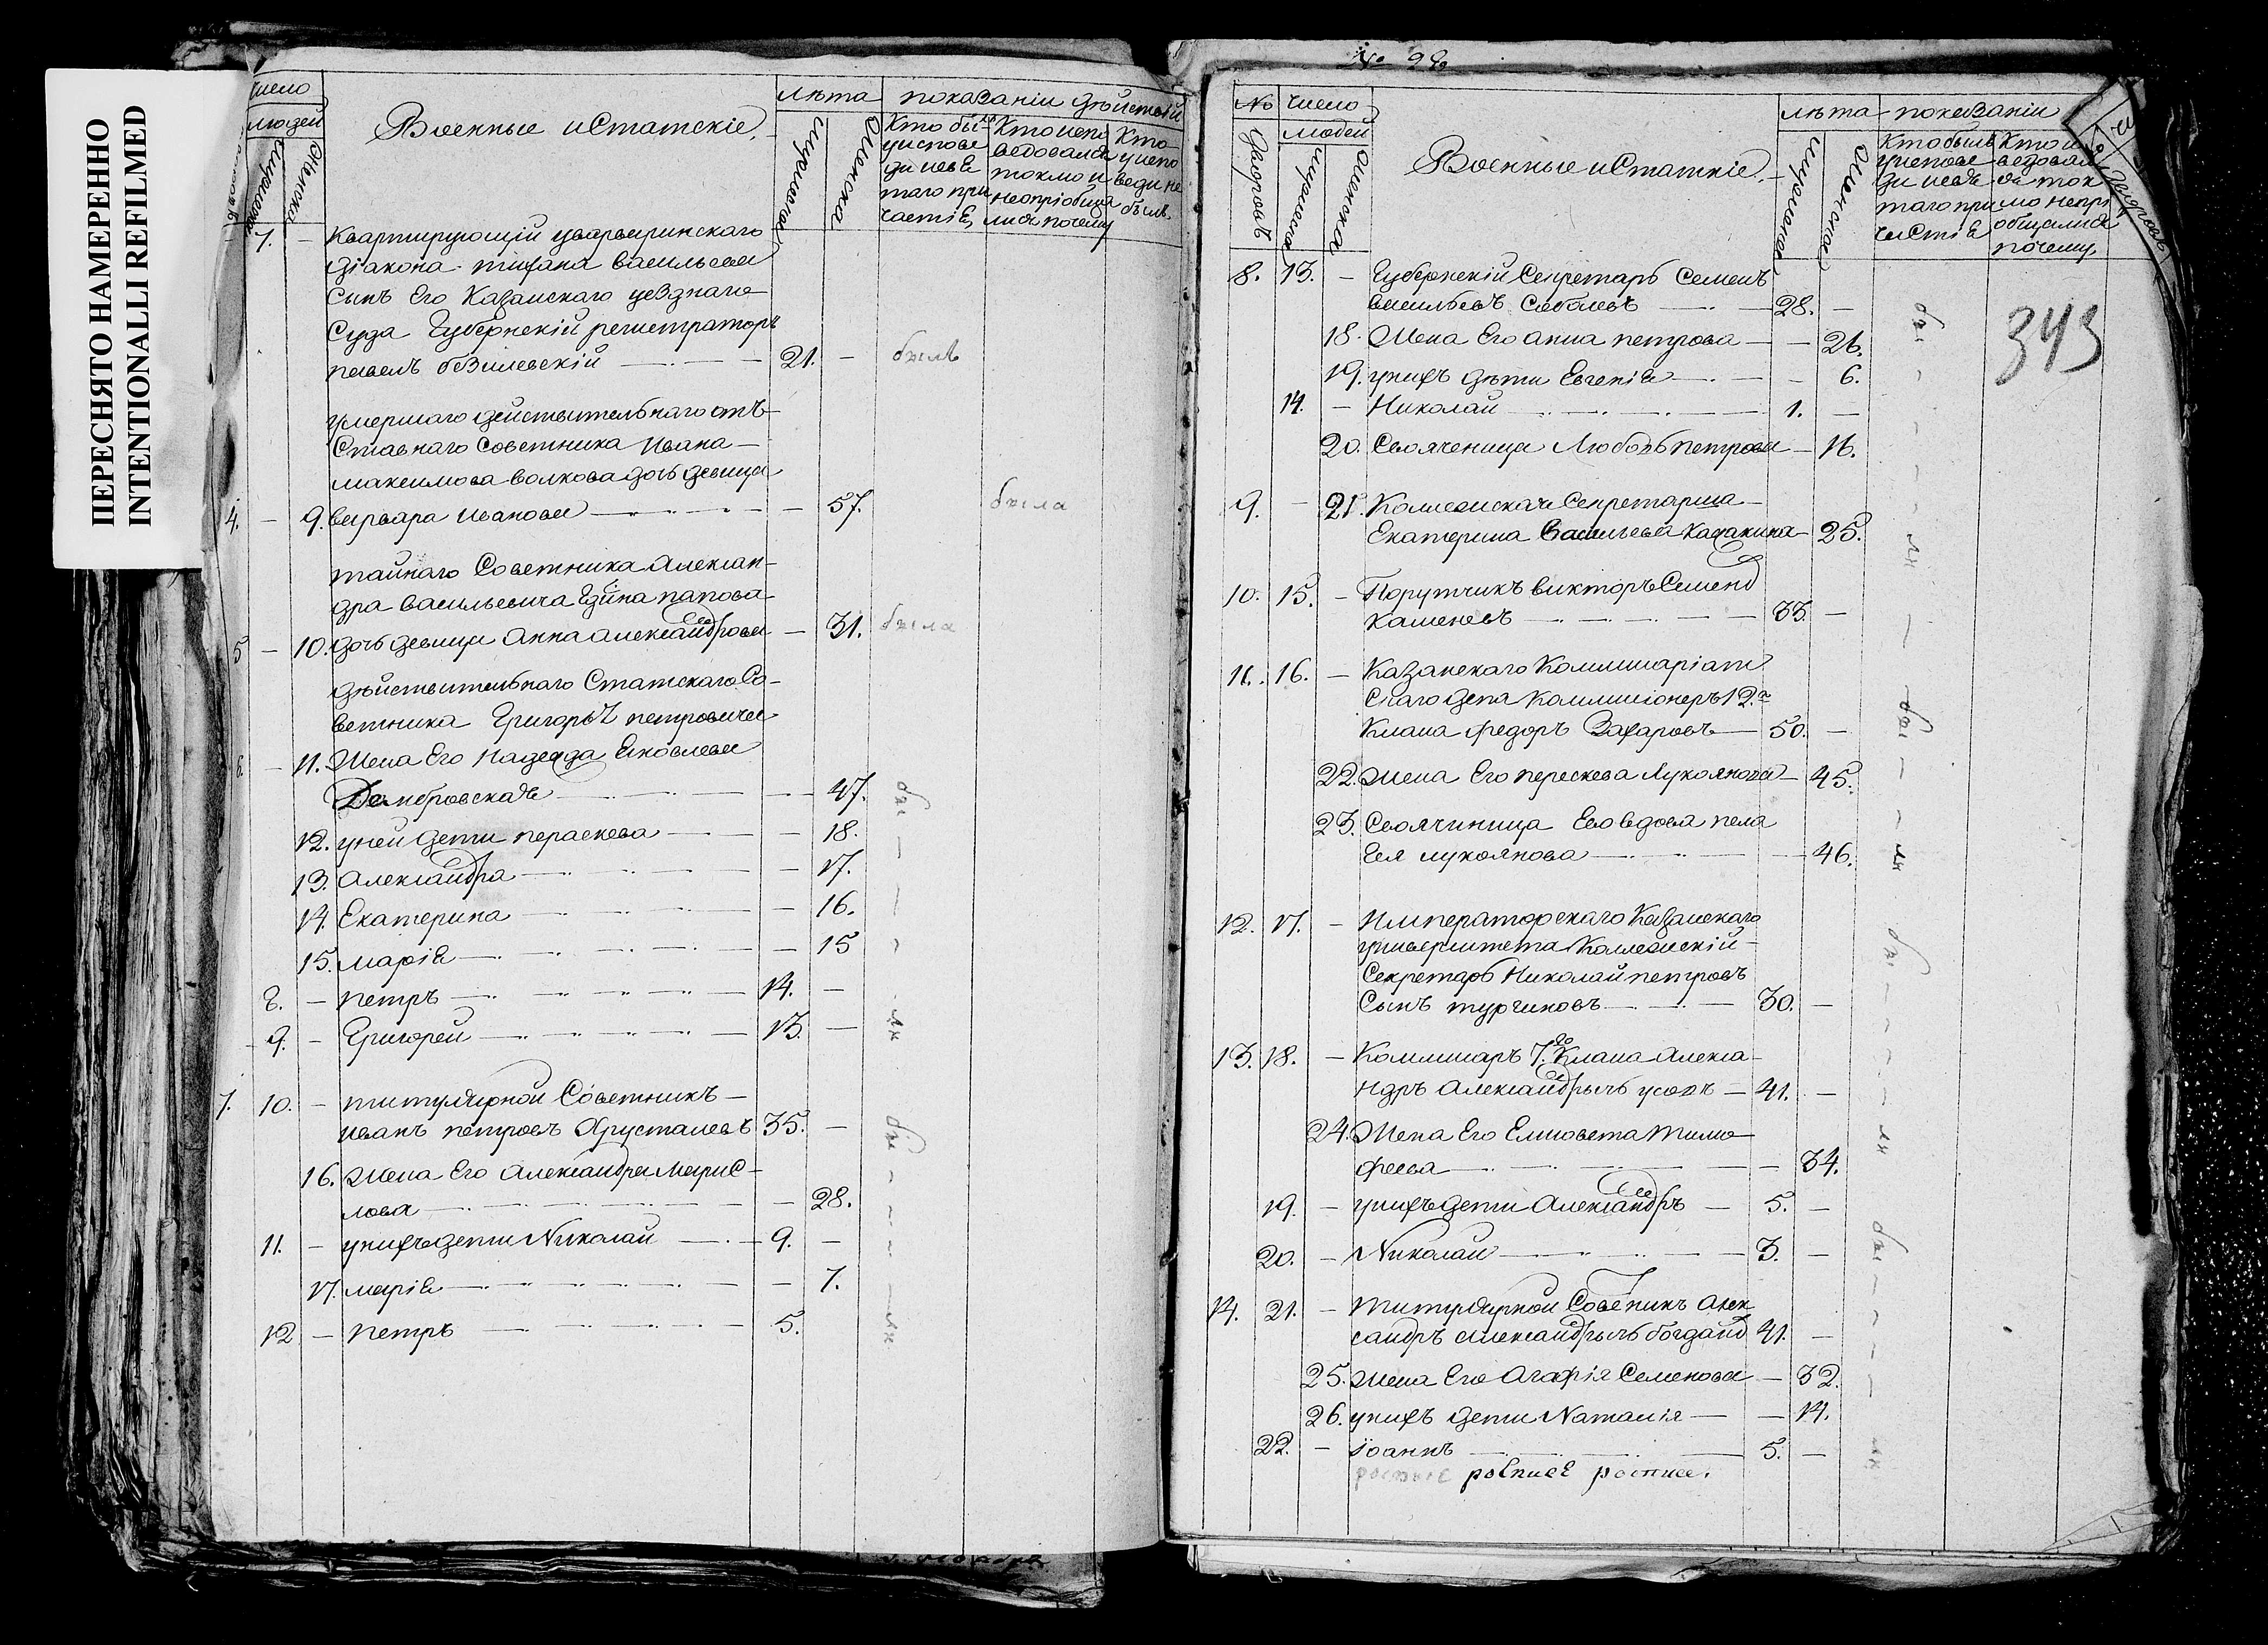 ПЕРЕСНЯТО НАМЕРЕННО
INTENTIONALLI REFILMED
число
людей
мужеска
женска
Военные и Статскіе
лѣта
мужеска
женска
показаніи дѣйствій
Кто былъ
у испове
ди и св
таго при
частіѧ
Кто испо
ведовалсѧ
токмо и
не пріобща
лисѧ почему
Кто
у испо
веди не
былъ.
7. — Квартирующій у варваринскаго
діакона
сынъ Его Казанскаго уезднаго
Суда Губернскій регистраторъ
павелъ — 21. — былъ
умершаго действительнаго стат-
Советника Ивана
максимова волкова дочь девица
4. — 9. варвара Иванова — 57. была
тайнаго Советника Алексан-
дра васильевича
5 — 10. дочь девица Анна Александрова — 31. была
дѣйствительнаго Статскаго Со-
ветника Григорьѧ петровича
6. — 11. Жена Его Надежда Яковлева
Домбровскаѧ — 47.
12. у ней дети параскева — 18.
13. Александра — 17.
14. Екатерина — 16.
15. маріѧ — 15
8. — петръ — 14. —
9. — Григорей — 13. —
7. 10. — титулярной Советникъ
иванъ петровъ Хрусталевъ 35. —
16. Жена Его Александра
лова — 28.
11. — у нихъ дети Николай — 9. —
17. маріѧ — 7.
12 — петръ — 5.
бы — ли
бы — ли
№
дворовъ
число
людей
мужеска
женска
Военные и Статскіе
лѣта
мужеска
женска
показаніи
Кто былъ
у испове
ди и свѧ
таго при
частіѧ
Кто и
ведовал
сѧ ток
мо не прі
общалисѧ
почему
343
8. 13. — Губернскій Секретарь Семенъ
васильевъ Соболевъ — 28. —
18. Жена Его анна петрова — 26.
19. у нихъ дѣти Евгеніѧ — 6.
14. — Николай — 1. —
20. Свояченица Любовь петрова — 16.
9. — 21. Коллежскаѧ Секретарша
Екатерина васильева Казакина — 25.
10. 15. — Порутчикъ викторъ Семен
Каменевъ — 33. —
11. 16. — Казанскаго Коммисаріат
скаго депа Коммисіонеръ 12.го
класа федоръ Захаровъ — 50. —
22. Жена Его пераскева Лукоянова — 45.
23. Своячиница Его вдова пела
гея лукоянова — 46.
12. 17. — Императорскаго Казанскаго
университета Коллежскій
Секретарь Николай петровъ
Сынъ турчиновъ — 30. —
13. 18. — Коммисаръ 7.го класа Алекса
ндръ Александрычь усовъ — 41. —
24. Жена Его Елисавета тимо
феева — 34.
19. — у нихъ дети Александръ — 5. —
20. — Николай — 3. —
14. 21. — титулярной Советникъ Алек
сандръ Александрычь богдан 41. —
25. Жена Его Агафія Семенова — 32.
26. у нихъ дети Наталія — 14.
22. — іоаннъ — 5. —
роспись роспись роспись
бы — ли
бы — ли
бы — ли
бы — ли